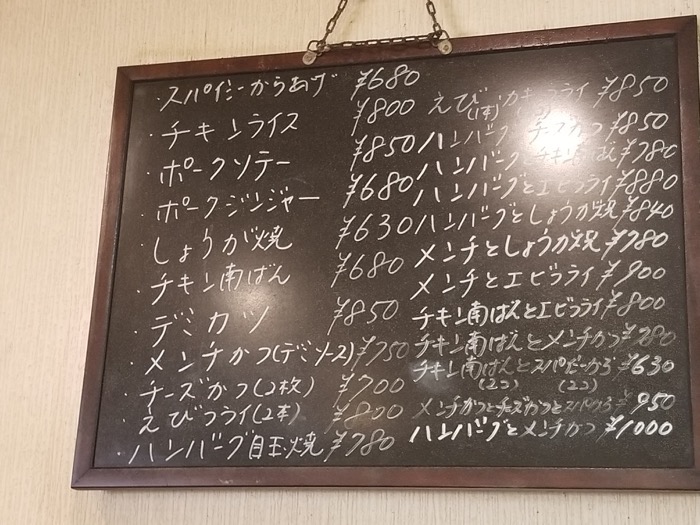 ・スパイシーからあげ ¥680
・チキンライス ¥800
・ポークソテー ¥850
・ポークジンジャー ¥680
・しょうが焼 ¥630
・チキン南ばん ¥680
・デミカツ ¥850
・メンチかつ(デミソース) ¥750
・チーズかつ(2枚) ¥700
・えびフライ(2本) ¥800
・ハンバーグ目玉焼 ¥780
えび カキフライ ¥850
(1本)
ハンバーグ かつ ¥850
ハンバーグ チキン南ばん ¥780
ハンバーグとエビフライ ¥880
ハンバーグとしょうが焼 ¥840
メンチとしょうが焼 ¥780
メンチとエビフライ ¥900
チキン南ばんとエビフライ ¥800
チキン南ばんとメンチかつ ¥780
チキン南ばんとスパイシーから ¥630
(2コ) (2コ)
メンチかつとチーズかつと ¥950
ハンバーグとメンチかつ ¥1000